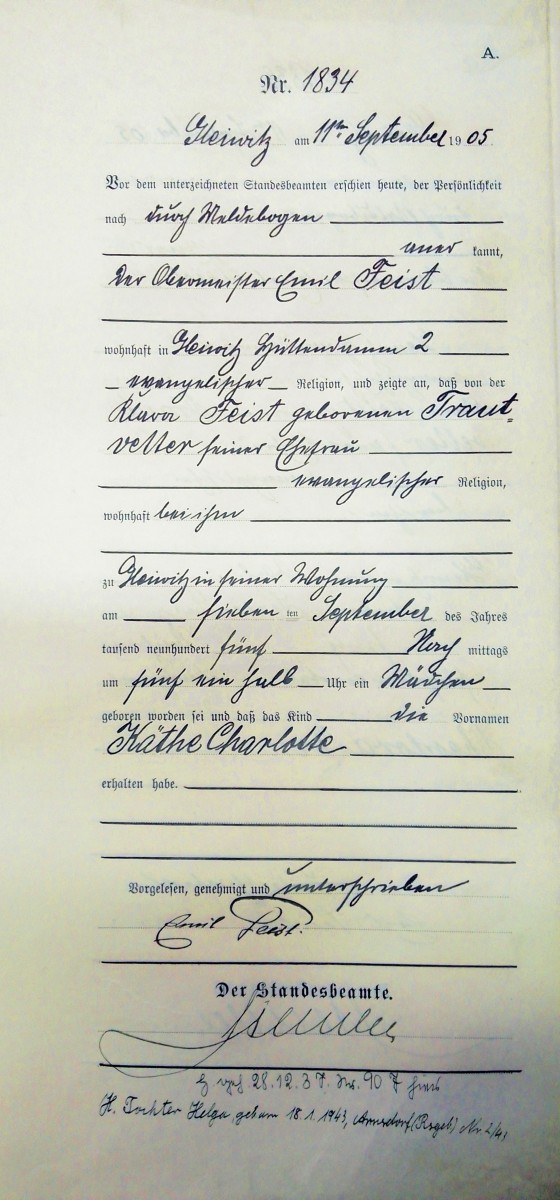 A.
Nr. 1834
Gleiwitz am 11ten September 1905.
Vor dem unterzeichneten Standesbeamten erschien heute, der Persönlichkeit
nach durch Meldebogen
anerkannt,
Der Obermeister Emil Feist
wohnhaft in Gleiwitz Hüttendamm 2
evangelischer Religion, und zeigte an, daß von der
Klara Feist geborenen Traut-
vetter seiner Ehefrau
evangelischer Religion,
wohnhaft bei ihm
zu Gleiwitz in seiner Wohnung
am sieben ten September des Jahres
tausend neunhundert fünf Nach mittags
um fünf ein halb Uhr ein Mädchen
geboren worden sei und daß das Kind die Vornamen
Käthe Charlotte
erhalten habe.
Vorgelesen, genehmigt und unterschrieben
Emil Feist.
Der Standesbeamte.
28.12.37. Nr. 907
Tochter Helga, geboren 18.1.1943, Arnsdorf (Rsgeb) Nr. 2/41